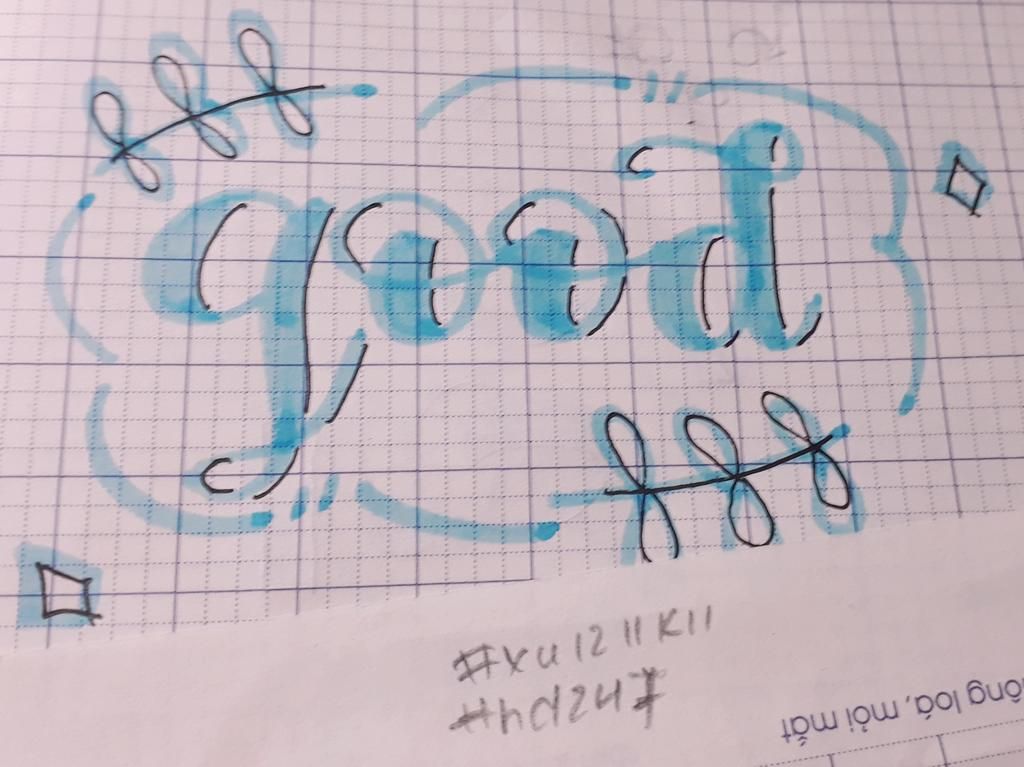 good
#xu1211k11
#hd247
ông loá, mỏi mắt